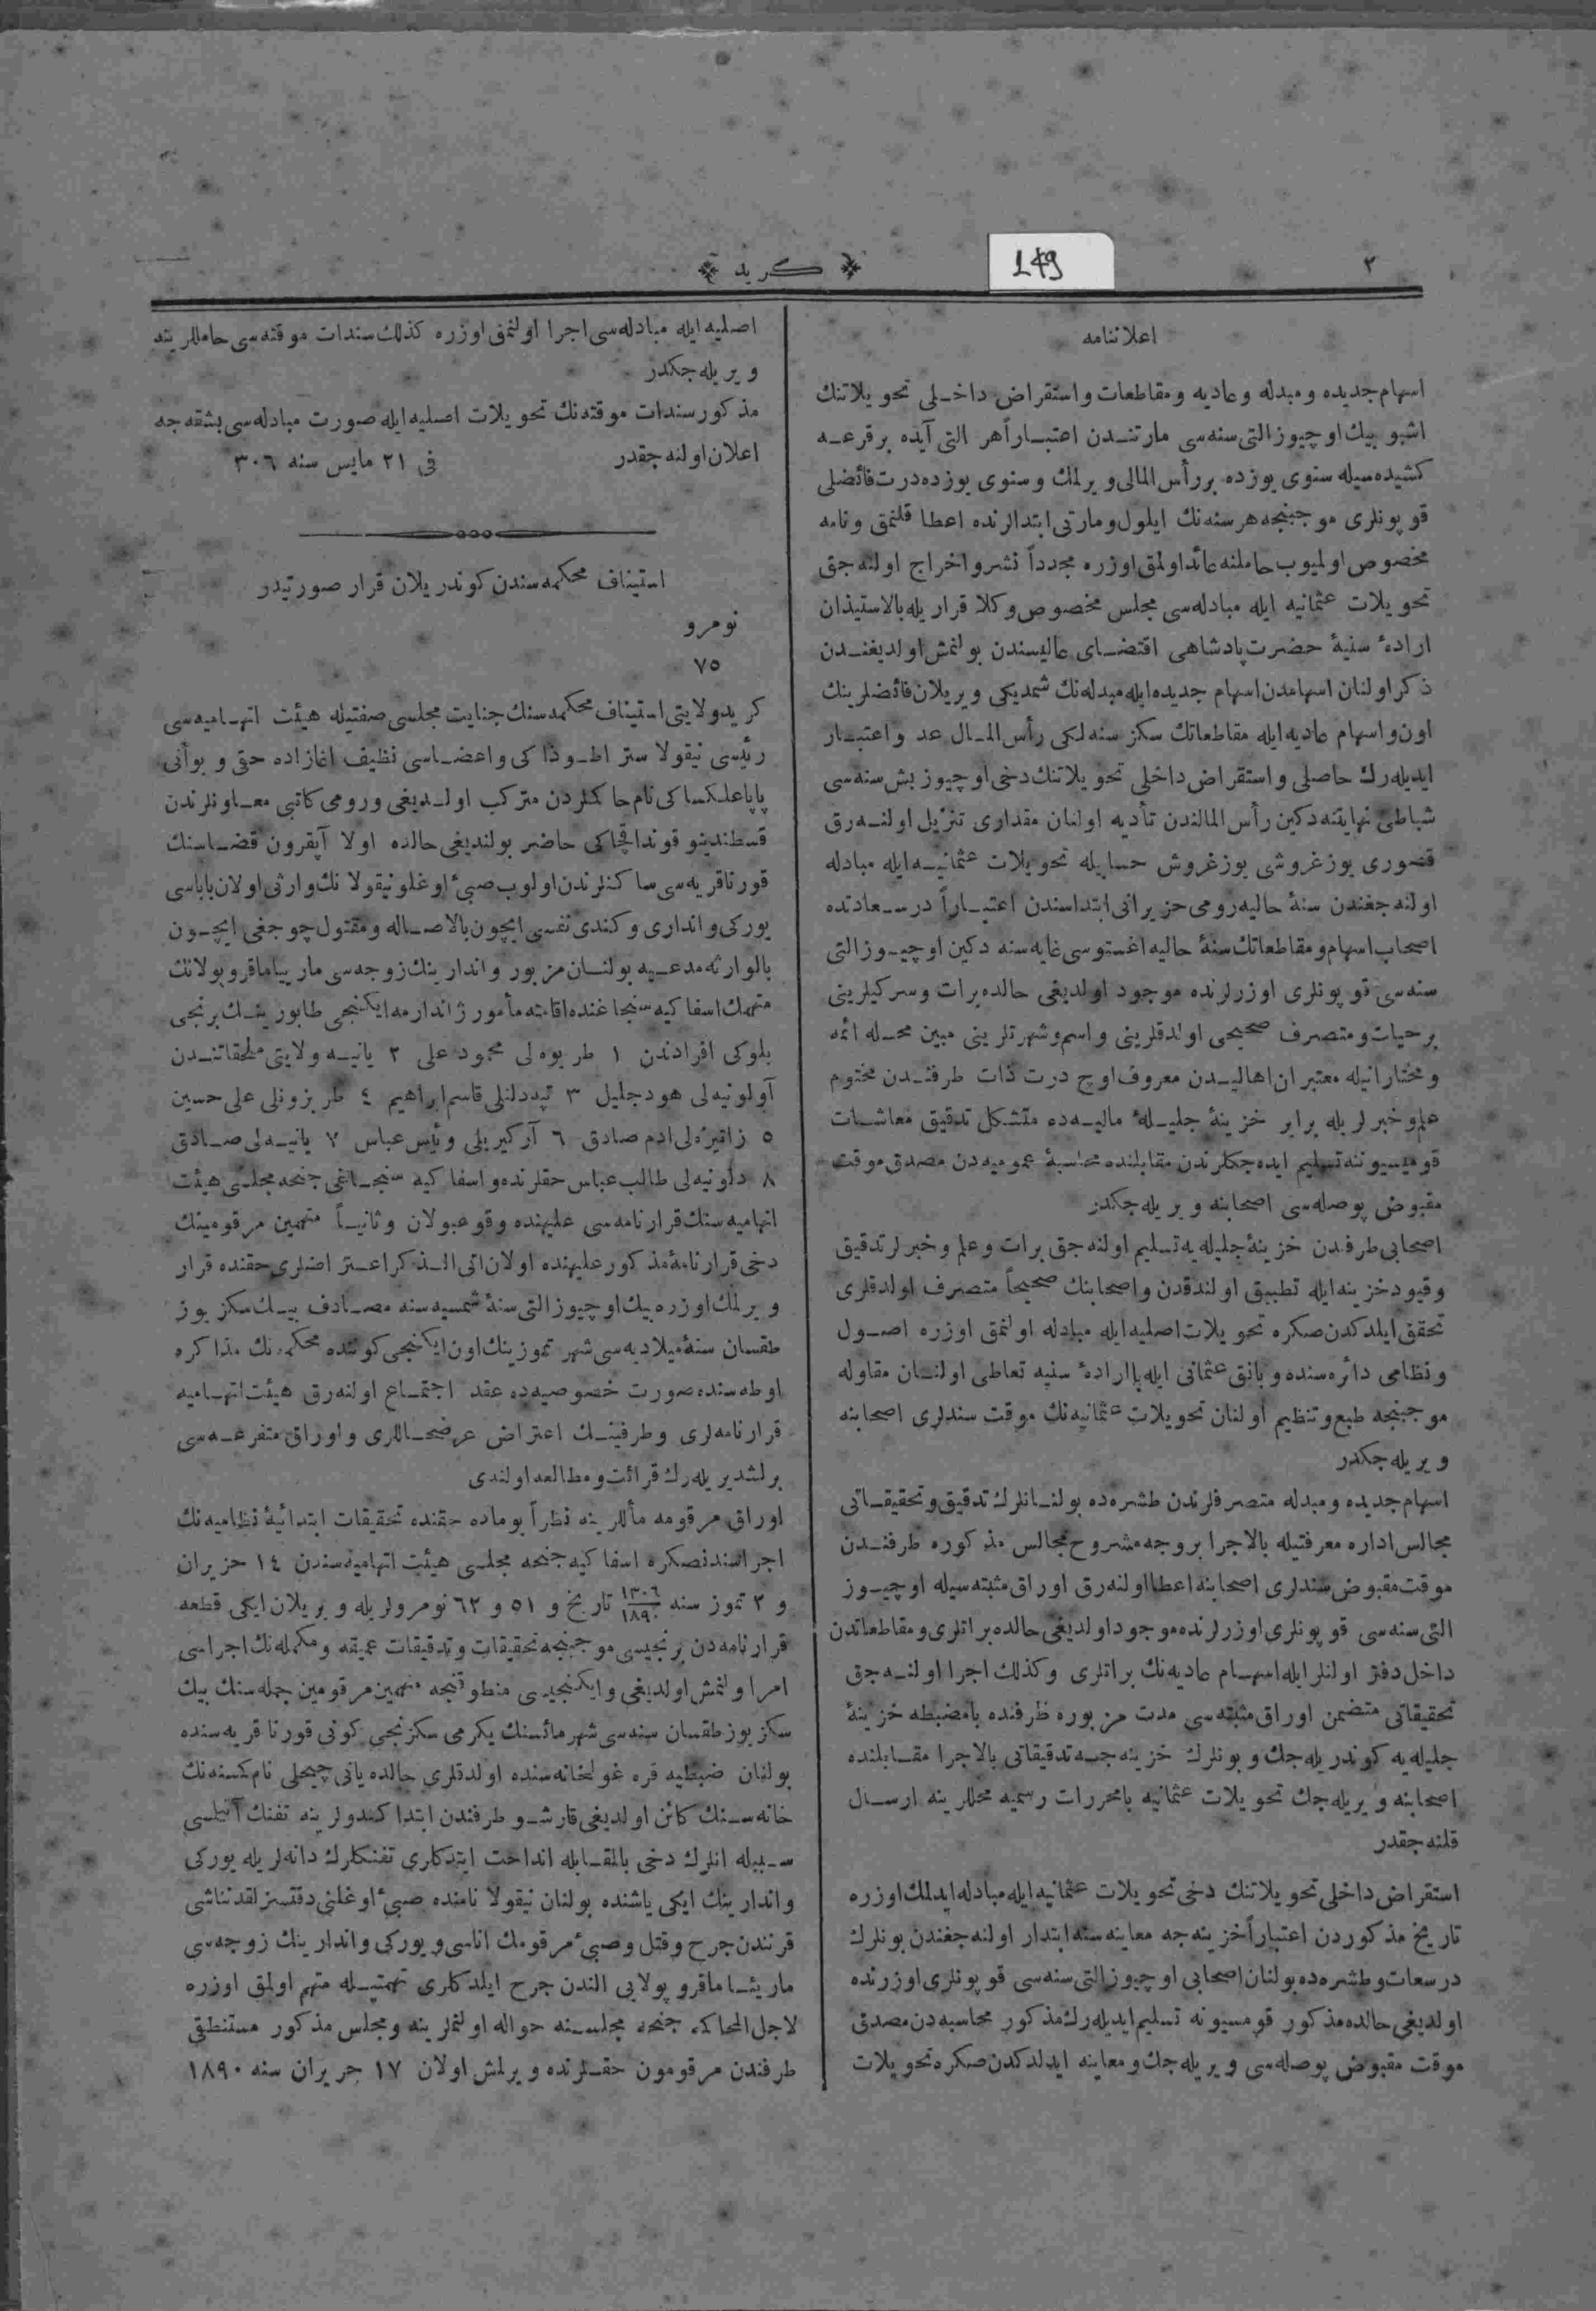 ٢
149
﴿ كريد ﴾
اعلاننامه
اسهام جديده ومبدله وعاديه ومقاطعات واستقراض داخلى تحويلاتنك
اشبو بيك اوچيوز التى سنه سى مارتندن اعتباراً هر التى آيده بر قرعه
كشيده سيله سنوى يوزده بر رأس المالى ويرلمك وسنوى يوزده درت فائضلى
قوپونلرى موجبنجه هر سنه نك ايلول ومارتى ابتدالرنده اعطا قلنمق ونامه
مخصوص اولميوب حاملنه عائد اولمق اوزره مجدداً نشر واخراج اولنه جق
تحويلات عثمانيه ايله مبادله سى مجلس مخصوص وكلا قراريله بالاستيذان
ارادۀ سنيۀ حضرت پادشاهى اقتضاى عاليسندن بولنمش اولديغندن
ذكر اولنان اسهامدن اسهام جديده ايله مبدله نك شمديكى ويريلان فائضلرينك
اون واسهام عاديه ايله مقاطعاتك سكز سنه لكى رأس المال عد واعتبار
ايديله رك حاصلى واستقراض داخلى تحويلاتنك دخى اوچيوز بش سنه سى
شباطى نهايتنه دكين رأس المالندن تأديه اولنان مقدارى تنزيل اولنه رق
قصورى يوز غروشى يوز غروش حسابيله تحويلات عثمانيه ايله مبادله
اولنه جغندن سنۀ حاليه رومى حزيرانى ابتداسندن اعتباراً درسعادتده
اصحاب اسهام ومقاطعاتك سنۀ حاليه اغستوسى غايه سنه دكين اوچيوز التى
سنه سى قوپونلرى اوزرلرنده موجود اولديغى حالده برات وسركيلرينى
بر حيات ومتصرف صحيحى اولدقلرينى واسم وشهرتلرينى مبين محله ائمه
ومختارانيله معتبران اهاليدن معروف اوچ درت ذات طرفندن مختوم
علم وخبرلريله برابر خزينۀ جليلۀ ماليه ده متشكل تدقيق معاشات
قوميسيوننه تسليم ايده جكلرندن مقابلنده محاسبۀ عموميه دن مصدق موقت
مقبوض پوصله سى اصحابنه ويريله جكدر
اصحابى طرفدن خزينۀ جليله يه تسليم اولنه جق برات وعلم وخبرلر تدقيق
وقيود خزينه ايله تطبيق اولندقدن واصحابنك صحيحاً متصرف اولدقلرى
تحقق ايلدكدن صكره تحويلات اصليه ايله مبادله اولنمق اوزره اصول
ونظامى دائره سنده وبانق عثمانى ايله باارادۀ سنيه تعاطى اولنان مقاوله
موجبنجه طبع وتنظيم اولنان تحويلات عثمانيه نك موقت سندلرى اصحابنه
ويريله جكدر
اسهام جديده ومبدله متصرفلرندن طشره ده بولنانلرك تدقيق وتحقيقاتى
مجالس اداره معرفتيله بالاجرا بروجه مشروح مجالس مذكوره طرفندن
موقت مقبوض سندلرى اصحابنه اعطا اولنه رق اوراق مثبته سيله اوچيوز
التى سنه سى قوپونلرى اوزرلرنده موجود اولديغى حالده براتلرى ومقاطعاتدن
داخل دفتر اولنلر ايله اسهام عاديه نك براتلرى وكذلك اجرا اولنه جق
تحقيقاتى متضمن اوراق مثبته سى مدت مزبوره ظرفنده بامضبطه خزينۀ
جليله يه كوندريله جك وبونلرك خزينه جه تدقيقاتى بالاجرا مقابلنده
اصحابنه ويريله جك تحويلات عثمانيه بامحررات رسميه محللرينه ارسال
قلنه جقدر
استقراض داخلى تحويلاتنك دخى تحويلات عثمانيه ايله مبادله ايدلمك اوزره
تاريخ مذكوردن اعتباراً خزينه جه معاينه سنه ابتدار اولنه جغندن بونلرك
درسعات وطشره ده بولنان اصحابى اوچيوز التى سنه سى قوپونلرى اوزرنده
اولديغى حالده مذكور قومسيونه تسليم ايديله رك مذكور محاسبه دن مصدق
موقت مقبوض پوصله سى ويريله جك ومعاينه ايدلدكدن صكره تحويلات
اصليه ايله مبادله سى اجرا اولنمق اوزره كذلك سندات موقته سى حامللرينه
ويريله جكدر
مذكور سندات موقته نك تحويلات اصليه ايله صورت مبادله سى بشقه جه
اعلان اولنه جقدر فى ٢١ مايس سنه ٣٠٦
استيناف محكمه سندن كوندريلان قرار صورتيدر
نومرو
٧٥
كريد ولايتى استيناف محكمه سنك جنايت مجلسى صفتيله هيئت اتهاميه سى
رئيسى نيقولا ستراطوذاكى واعضاسى نظيف اغازاده حقى و يوآنى
پاپاعلكساكى نام حاكملردن متركب اولديغى ورومى كاتبى معاونلرندن
قسطندينو قونداقچاكى حاضر بولنديغى حالده اولا آپقرون قضاسنك
قورنا قريه سى ساكنلرندن اولوب صبئ اوغلو نيقولا نك وارثى اولان باباسى
يوركى واندارى وكندى نفسى ايچون بالاصاله ومقتول چوجغى ايچون
بالوارثه مدعيه بولنان مزبور واندارينك زوجه سى ماريا ماقروپولانك
متهمك اسفاكيه سنجاغنده اقامته مأمور ژاندارمه ايكنجى طابورينك برنجى
بلوكى افرادندن ١ طربوه لى محمود على ٢ يانيه ولايتى ملحقاتندن
آولونيه لى هود جليل ٣ تپه دلنلى قاسم ابراهيم ٤ طربزونلى على حسين
٥ زاتيره لى ادم صادق ٦ آركيريلى ويس عباس ٧ يانيه لى صادق
٨ دلونيه لى طالب عباس حقلرنده واسفاكيه سنجاغى جنحه مجلسى هيئت
اتهاميه سنك قرارنامه سى عليهنده وقوعبولان وثانياً متهمين مرقومينك
دخى قرارنامۀ مذكور عليهنده اولان اتى الذكر اعتراضلرى حقنده قرار
ويرلمك اوزره بيك اوچيوز التى سنۀ شمسيه سنه مصادف بيك سكز يوز
طقسان سنۀ ميلاديه سى شهر تموزينك اون ايكنجى كوننده محكمه نك مذاكره
اوطه سنده صورت خصوصيه ده عقد اجتماع اولنه رق هيئت اتهاميه
قرارنامه لرى وطرفينك اعتراض عرضحاللرى واوراق متفرعه سى
برلشديريله رك قرائت ومطالعه اولندى
اوراق مرقومه مأللرينه نظراً بوماده حقنده تحقيقات ابتدائيۀ نظاميه نك
اجراسندنصكره اسفاكيه جنحه مجلسى هيئت اتهاميه سندن ١٤ حزيران
و ٢ تموز سنه ١٣٠٦/١٨٩٠ تاريخ و ٥١ و ٦٢ نومرولريله ويريلان ايكى قطعه
قرارنامه دن برنجيسى موجبنجه تحقيقات وتدقيقات عميقه ومكمله نك اجراسى
امر اولنمش اولديغى وايكنجيسى منطوقنجه متهمين مرقومين جمله سنك بيك
سكز يوز طقسان سنه سى شهر مائسنك يكرمى سكزنجى كونى قورنا قريه سنده
بولنان ضبطيه قره غولخانه سنده اولدقلرى حالده يانى چيحلى نام كسنه نك
خانه سنك كائن اولديغى قارشو طرفندن ابتدا كندولرينه تفنك آتيلمسى
سببيله انلرك دخى بالمقابله انداخت ايتدكلرى تفنكلرك دانه لريله يوركى
واندارينك ايكى ياشنده بولنان نيقولا نامنده صبئ اوغلنى دقتسزلقدنناشى
قرنندن جرح وقتل وصبئ مرقومك اناسى ويوركى واندارينك زوجه سى
ماريا ماقروپولايى الندن جرح ايلدكلرى تهمتيله متهم اولمق اوزره
لاجل المحاكمه جنحه مجلسنه حواله اولنملرينه ومجلس مذكور مستنطقى
طرفندن مرقومون حقلرنده ويرلمش اولان ١٧ حزيران سنه ١٨٩٠